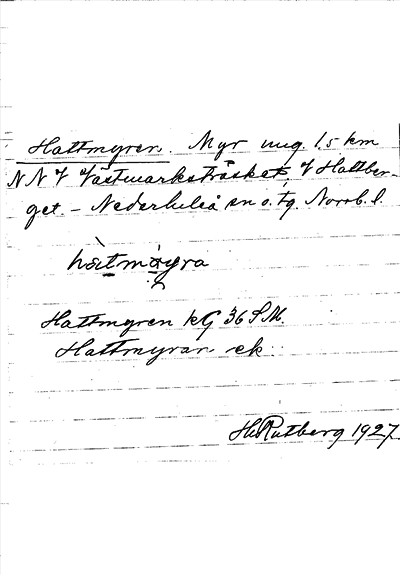 Hattmyren. Myr ung. 1,5 km
NNV Västmarksträsket, V Hattber-
get. - Nederluleå sn o. tg. Norrb. l.
Hattmyren kG 36 S.M.
Hattmyran ek
H. Rutberg 1927